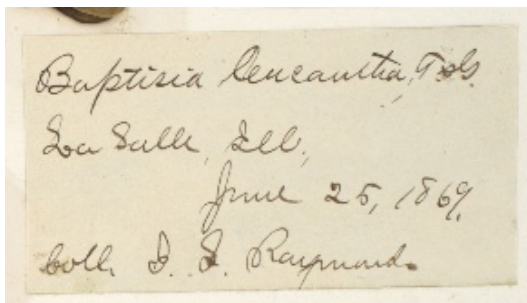 Baptisia leucantha, T. & G.
La Salle, Ill,
June 25, 1869.
Coll. Raymond.